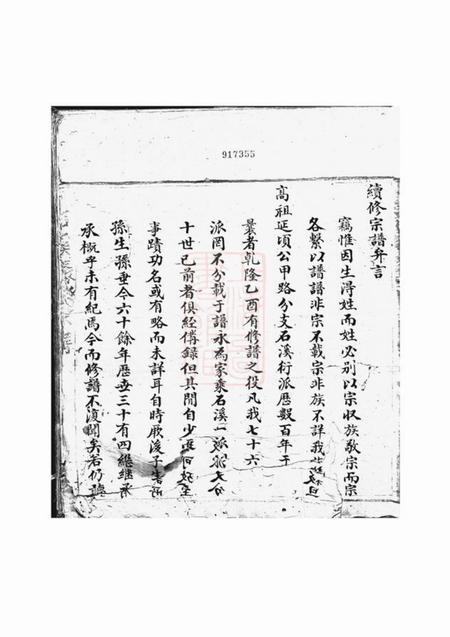 917355
續修宗譜弁言
竊惟因生得姓而姓必別以宗收族敬宗而宗
各繫以譜譜非宗不載宗非族不詳我
高祖延頃公甲路分支石溪衍派歷數百年于
曩者乾隆乙酉有修譜之役凡我七十六
派罔不分載于譜永為家乘石溪一派
十世已前者俱經備錄但其間自少
事蹟功名或有略而未詳耳自時厥後子
孫生孫垂今六十餘年歷世三十有四繼繼承
承概乎未有紀焉今而修譜不復聞矣若仍聽